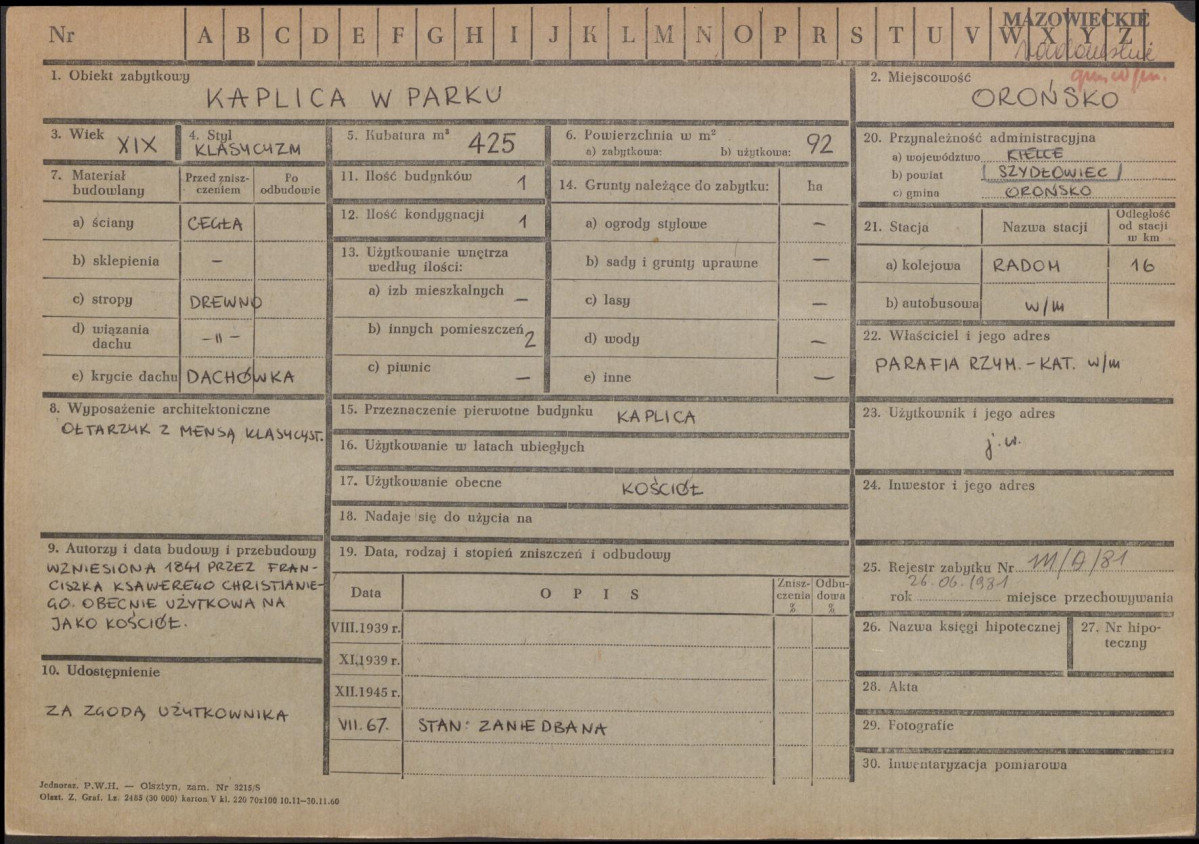 Nr A B C D E F G H I J K L M N O P R S T U V W X Y Z
MAZOWIECKIE
radomskie
gm. w/m.
1. Obiekt zabytkowy
KAPLICA W PARKU
2. Miejscowość
OROŃSKO
3. Wiek
XIX
4. Styl
KLASYCYZM
5. Kubatura m³
425
6. Powierzchnia w m²
a) zabytkowa: b) użytkowa: 92
7. Materiał budowlany
Przed zniszczeniem
Po odbudowie
a) ściany CEGŁA
b) sklepienia –
c) stropy DREWNO
d) wiązania dachu –〃–
e) krycie dachu DACHÓWKA
8. Wyposażenie architektoniczne
OŁTARZYK Z MENSĄ KLASYCYST.
9. Autorzy i data budowy i przebudowy
WZNIESIONA 1841 PRZEZ FRAN-
CISZKA KSAWEREGO CHRISTIANIE-
GO. OBECNIE UŻYTKOWA NA
JAKO KOŚCIÓŁ.
10. Udostępnienie
ZA ZGODĄ UŻYTKOWNIKA
11. Ilość budynków 1
12. Ilość kondygnacji 1
13. Użytkowanie wnętrza
według ilości:
a) izb mieszkalnych –
b) innych pomieszczeń 2
c) piwnic –
14. Grunty należące do zabytku: ha
a) ogrody stylowe –
b) sady i grunty uprawne –
c) lasy –
d) wody –
e) inne –
15. Przeznaczenie pierwotne budynku KAPLICA
16. Użytkowanie w latach ubiegłych
17. Użytkowanie obecne KOŚCIÓŁ
18. Nadaje się do użycia na
19. Data, rodzaj i stopień zniszczeń i odbudowy
Data
OPIS
Zniszczenia %
Odbudowa %
VIII.1939 r.
XI.1939 r.
XII.1945 r.
VII.67. STAN: ZANIEDBANA
20. Przynależność administracyjna
a) województwo KIELCE
b) powiat SZYDŁOWIEC
c) gmina OROŃSKO
21. Stacja
Nazwa stacji
Odległość od stacji w km
a) kolejowa RADOM 16
b) autobusowa w/m
22. Właściciel i jego adres
PARAFIA RZYM.-KAT. w/m
23. Użytkownik i jego adres
j.w.
24. Inwestor i jego adres
25. Rejestr zabytku Nr 111/A/81
26.06.1981
rok miejsce przechowywania
26. Nazwa księgi hipotecznej
27. Nr hipoteczny
28. Akta
29. Fotografie
30. Inwentaryzacja pomiarowa
Jednoraz. P.W.H. — Olsztyn, zam. Nr 3215/S
Olszt. Z. Graf. Lz. 2485 (30 000) karton V kl. 220 70x100 10.11—30.11.60